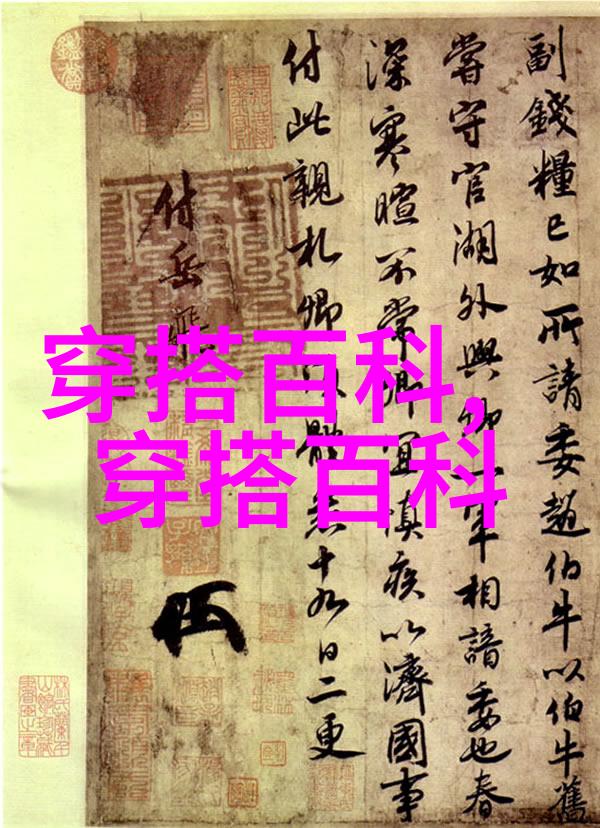 穿搭百科,
穿搭百科
副錢糧已如所請委趙伯牛以伯牛舊
嘗守官湖外與卿一軍相諳委也春
深寒暄不常卿宜慎疾以濟國事
付此親札卿體悉十九日二更
付岳飛